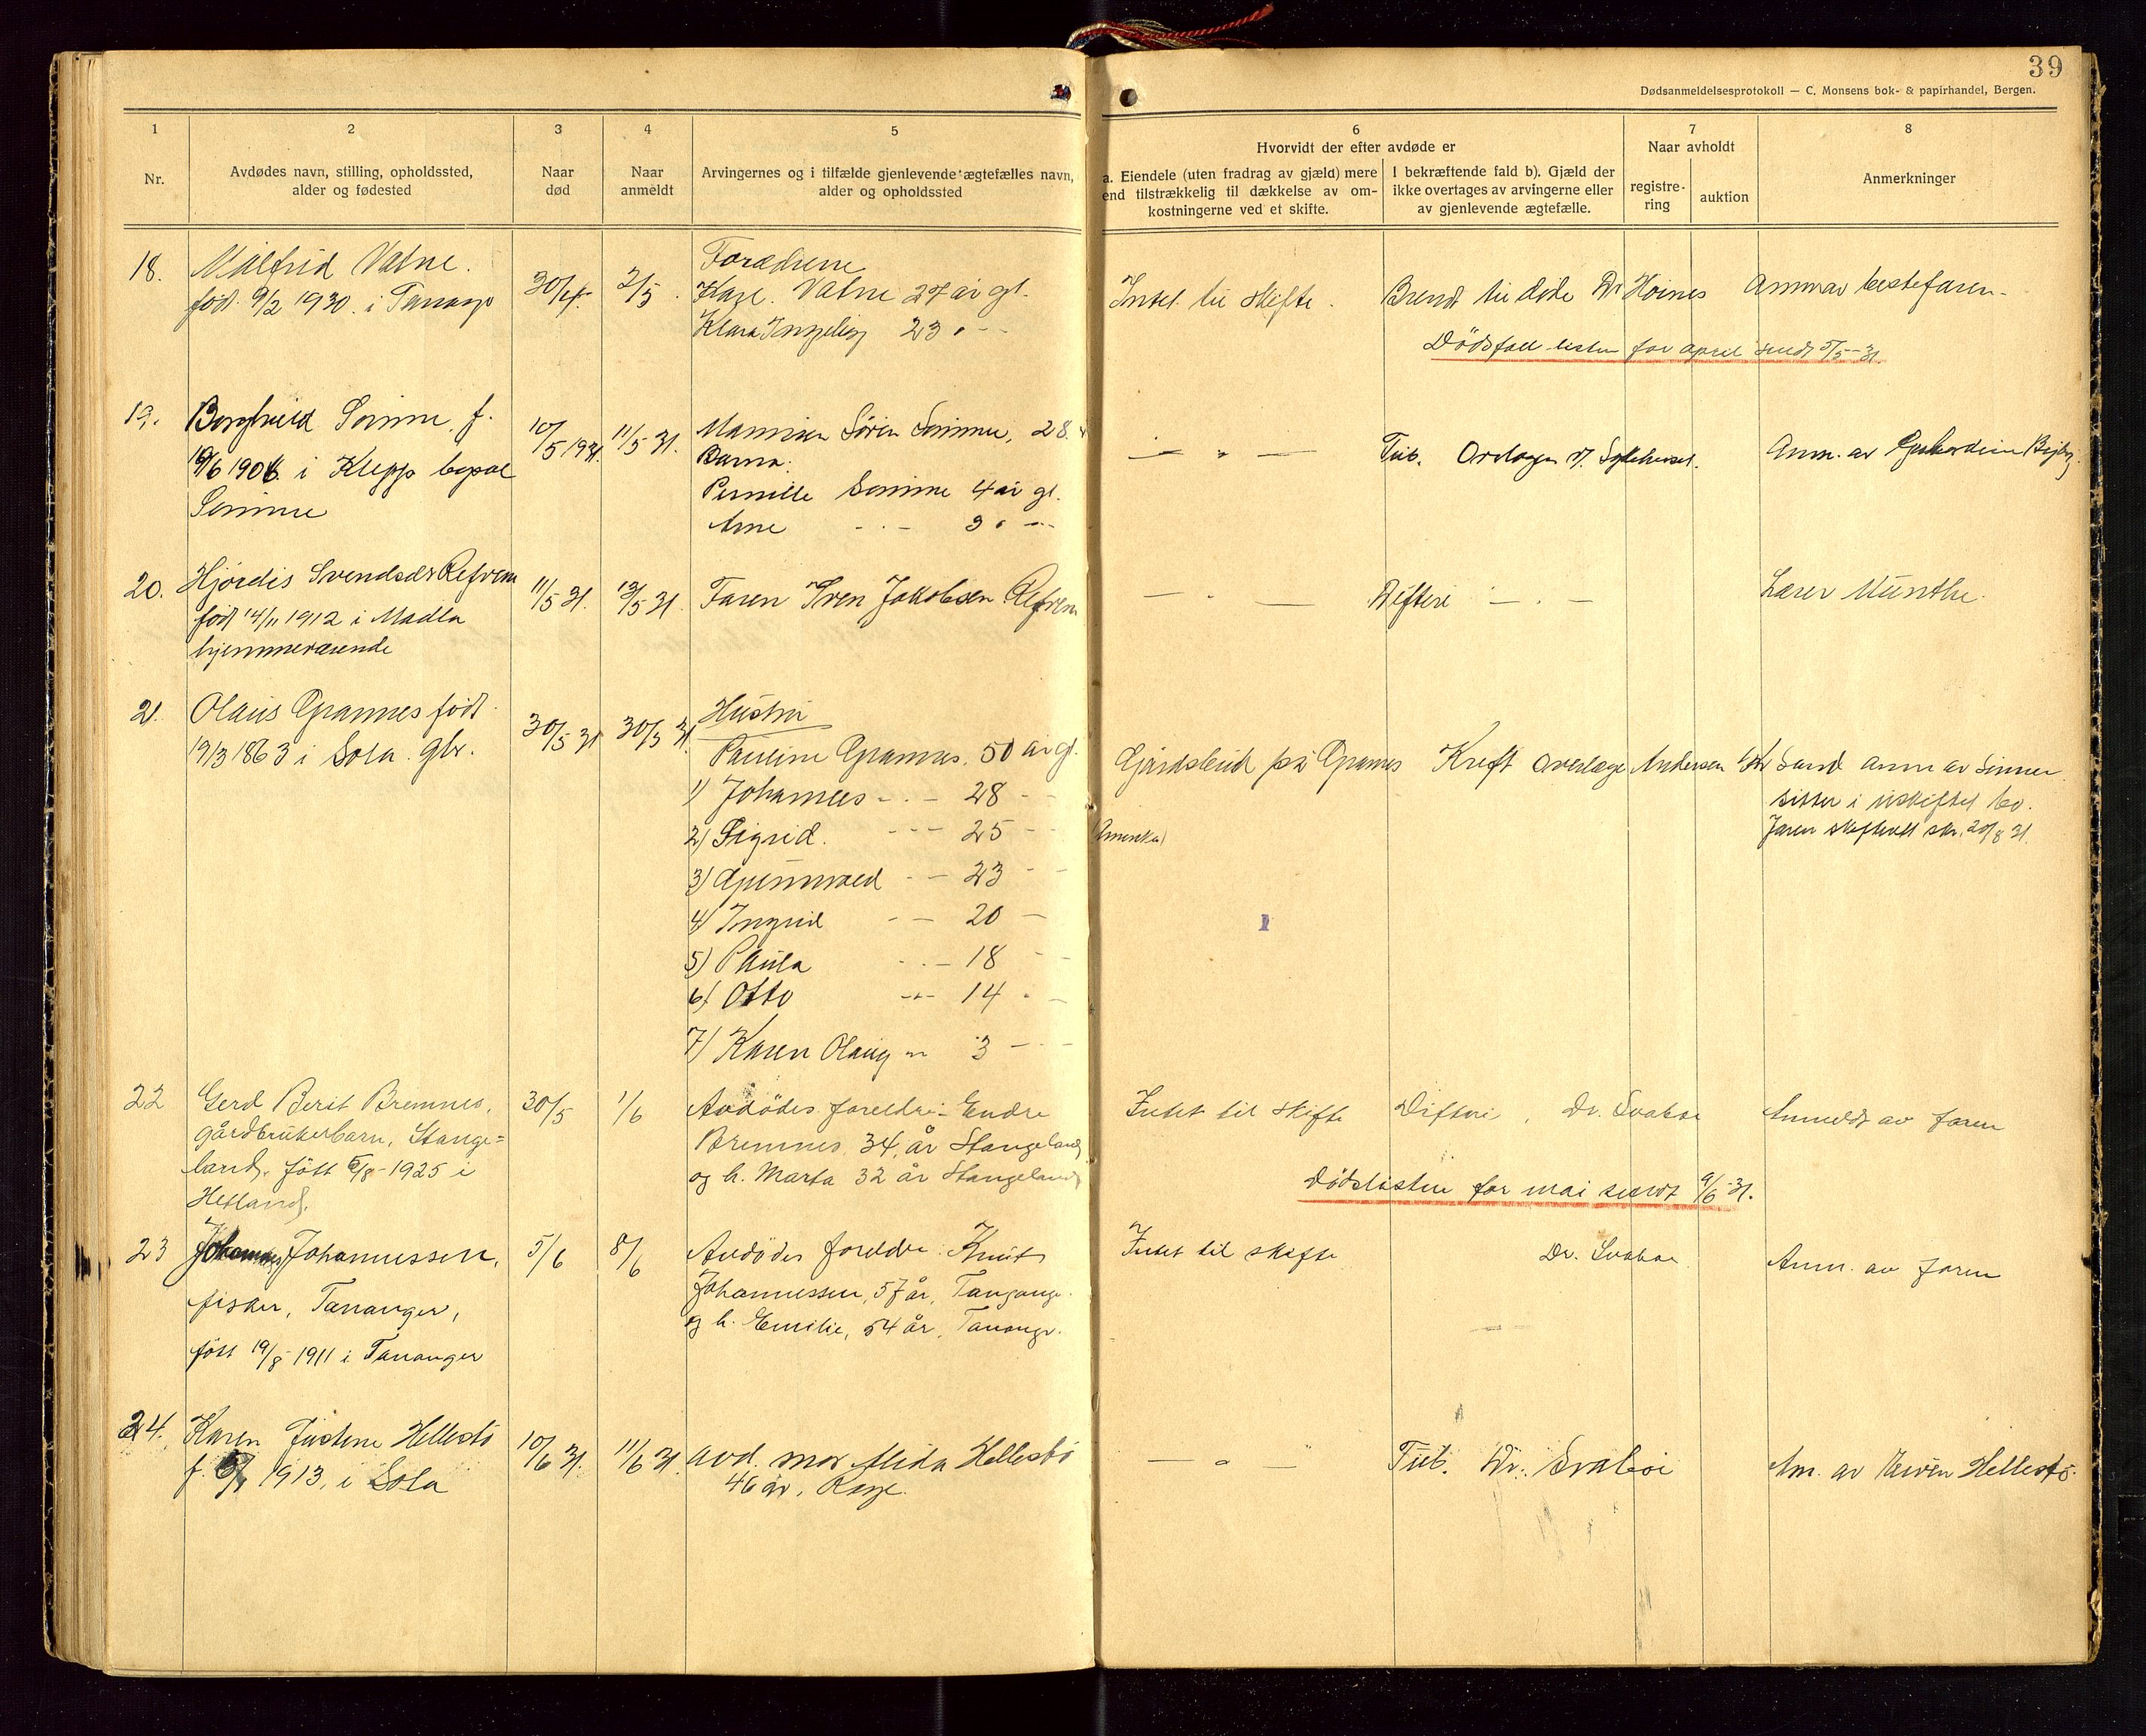 39
Dødsanmeldelsesprotokoll — C. Monsens bok- & papirhandel, Bergen.
1
2
3
4
5
6
7
8
Nr.
Avdødes navn, stilling, opholdssted,
alder og fødested
Naar
død
Naar
anmeldt
Arvingernes og i tilfælde gjenlevende ægtefælles navn,
alder og opholdssted
Hvorvidt der efter avdøde er
a. Eiendele (uten fradrag av gjæld) mere
end tilstrækkelig til dækkelse av om-
kostningerne ved et skifte.
I bekræftende fald b). Gjæld der
ikke overtages av arvingerne eller
av gjenlevende ægtefælle.
Naar avholdt
registre-
ring
auktion
Anmerkninger
18.
Målfrid Vatne.
født 9/2 1930. i Tananger
30/4
2/5
Forældrene
Kare. Vatne 27 år gl.
Klara Ingeborg 23 " -
Intet til skifte.
Brendt til døde Dr Hoines
Anm av bestefaren
Dödsfall listen for april sendt 5/5-31.
19.
Borghild Sømme, f.
10/6 1906 i Klepp bopæl
Sømme
10/5 1931.
11/5 31.
Mannen Sören Sömme, 28.
Barna:
Pernille Sömme 4 år gl.
Arne - . - 3 " -
— " —
Tub. Overlægen v. Sykehuset.
Anm. av
20.
Hjördis Svendsdtr Refrem
født 14/11 1912 i Madla
hjemmeværende
11/5 31.
12/5 31.
Faren Sven Jakobsen Refrem
— " —
Difteri — . —
Lærer Munthe.
21.
Olaus Grannes født
19/3 1863 i Sola. gbr.
30/5 31
30/5 31
Hustru
Pauline Grannes. 50 år gl.
1) Johannes - . - 28 -
2) Sigrid. - - - 25 - (Amerika)
3) Gunnvald - - 23 -
4) Ingrid - - 20 -
5) Paula - . - 18 -
6) Otto - - 14 -
7) Karen Olaug - 3 -
Gårdsbruk på Grannes
Kreft Overlæge Andersen
Sand anm av sönnen.
sitter i uskiftet bo.
Jæren skifterett skr. 20/8 31.
22
Gerd Berit Bremnes,
gårdbrukerbarn, Stange=
land, født 5/8-1925 i
Hetland.
30/5
1/6
Avdödes foreldre: Endre
Bremnes, 34 år Stangeland
og h. Marta 32 år Stangeland
Intet til skifte
Difteri, Dr. Svaboe
Anmeldt av faren
Dödslisten for mai sendt 9/6-31.
23
Johannessen,
fisker, Tananger,
født 19/8-1911 i Tananger
5/6
8/6
Avdödes foreldre: Knut
Johannessen, 57 år, Tanange.
og h. Emilie, 54 år, Tanange.
Intet til skifte
Dr. Svaboe
Anm. av faren
24.
Karen Justine Hellestö
f. 1913, i Sola
10/6 31.
11/6 31.
avd. mor Alida Hellestö
46 år. Rage.
— " —
Tub. Dr. Svaboe
Anm. av Hellestö.